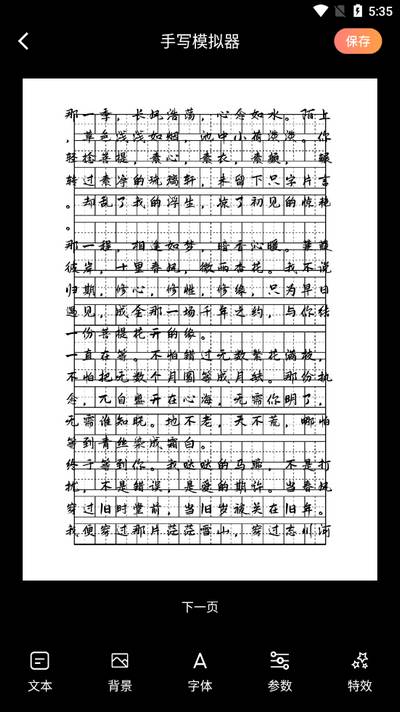 5:35
手写模拟器
保存
那一季，长风浩荡，心念如水。陌上
，草色浅浅如烟，池中小荷淡淡。你
轻捻菩提，素心，素衣，素颜，辗
转过素净的琉璃轩，未留下只字片言
。却乱了我的浮生，惊了初见的惊艳
。
那一程，相逢如梦，暗香沁暖。蒹葭
彼岸，十里春风，微雨杏花。我不说
归期，修心，修性，修缘，只为早日
遇见，成全那一场千年之约，与你结
一份菩提花开的缘。
一直在等。不怕错过无数繁花满枝，
不怕把无数个月圆等成月缺。那份执
念，兀自盛开在心海，无需你明了，
无需谁知晓。地不老，天不荒，哪怕
等到青丝染成霜白。
终于等到你。我哒哒的马蹄，不是打
扰，不是错误，是爱的期许。当春风
穿过旧时堂前，当旧岁被关在旧年。
我便穿过那片茫茫雪山，穿过忘川河
下一页
文本
背景
字体
参数
特效